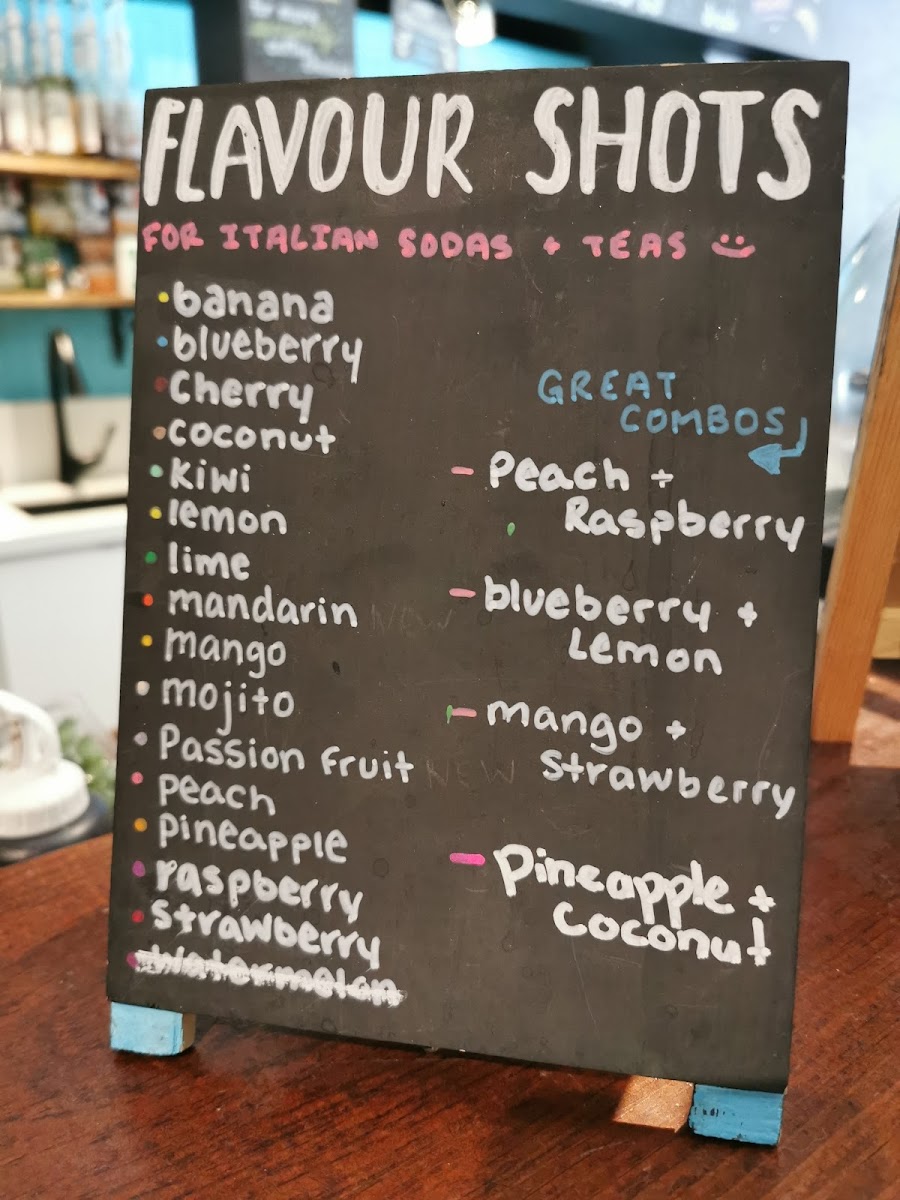 FLAVOUR SHOTS
FOR ITALIAN SODAS + TEAS
• banana
• blueberry
• Cherry
• coconut
• Kiwi
• lemon
• lime
• mandarin NEW
• mango
• mojito
• Passion fruit NEW
• Peach
• Pineapple
• raspberry
• strawberry
• watermelon
GREAT
COMBOS
- Peach +
Raspberry
- blueberry +
Lemon
- mango +
strawberry
- Pineapple +
Coconut